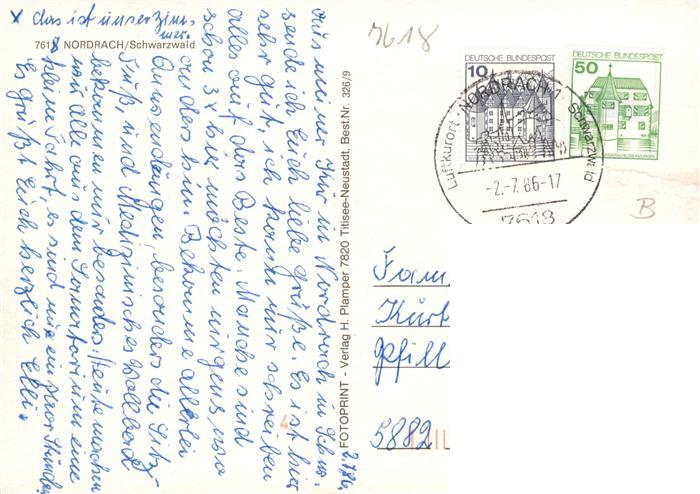 x das ist unser Zim-
mer.
7618 NORDRACH/Schwarzwald
2.7.86
Aus meine Kur in Nordrach im Schw.
sende ich Euch liebe Grüße. Es ist hier
sehr gut, ich kann nur schreiben
alles auf das Beste. Manche sind
schon 3x hier möchten nirgenswo
anders hin. Bekomme allerlei
Anwendungen, besonders die Sitz-
Fuß, und Medizinisches Vollbad
bekommen mir besonders. Heute machen
wir alle aus dem Sanatorium eine
kleine Fahrt, es sind nur ein paar Stunden
Es grüßt Euch herzlich Elli.
FOTOPRINT - Verlag H. Plamper 7820 Titisee-Neustadt, Best.Nr. 326/9
7618
DEUTSCHE BUNDESPOST
10
DEUTSCHE BUNDESPOST
50
Luftkurort · NORDRACH 1 Schwarzwald
-2.-7.86-17
7618
B
Fam.
Kurt
Pfill
5882
4